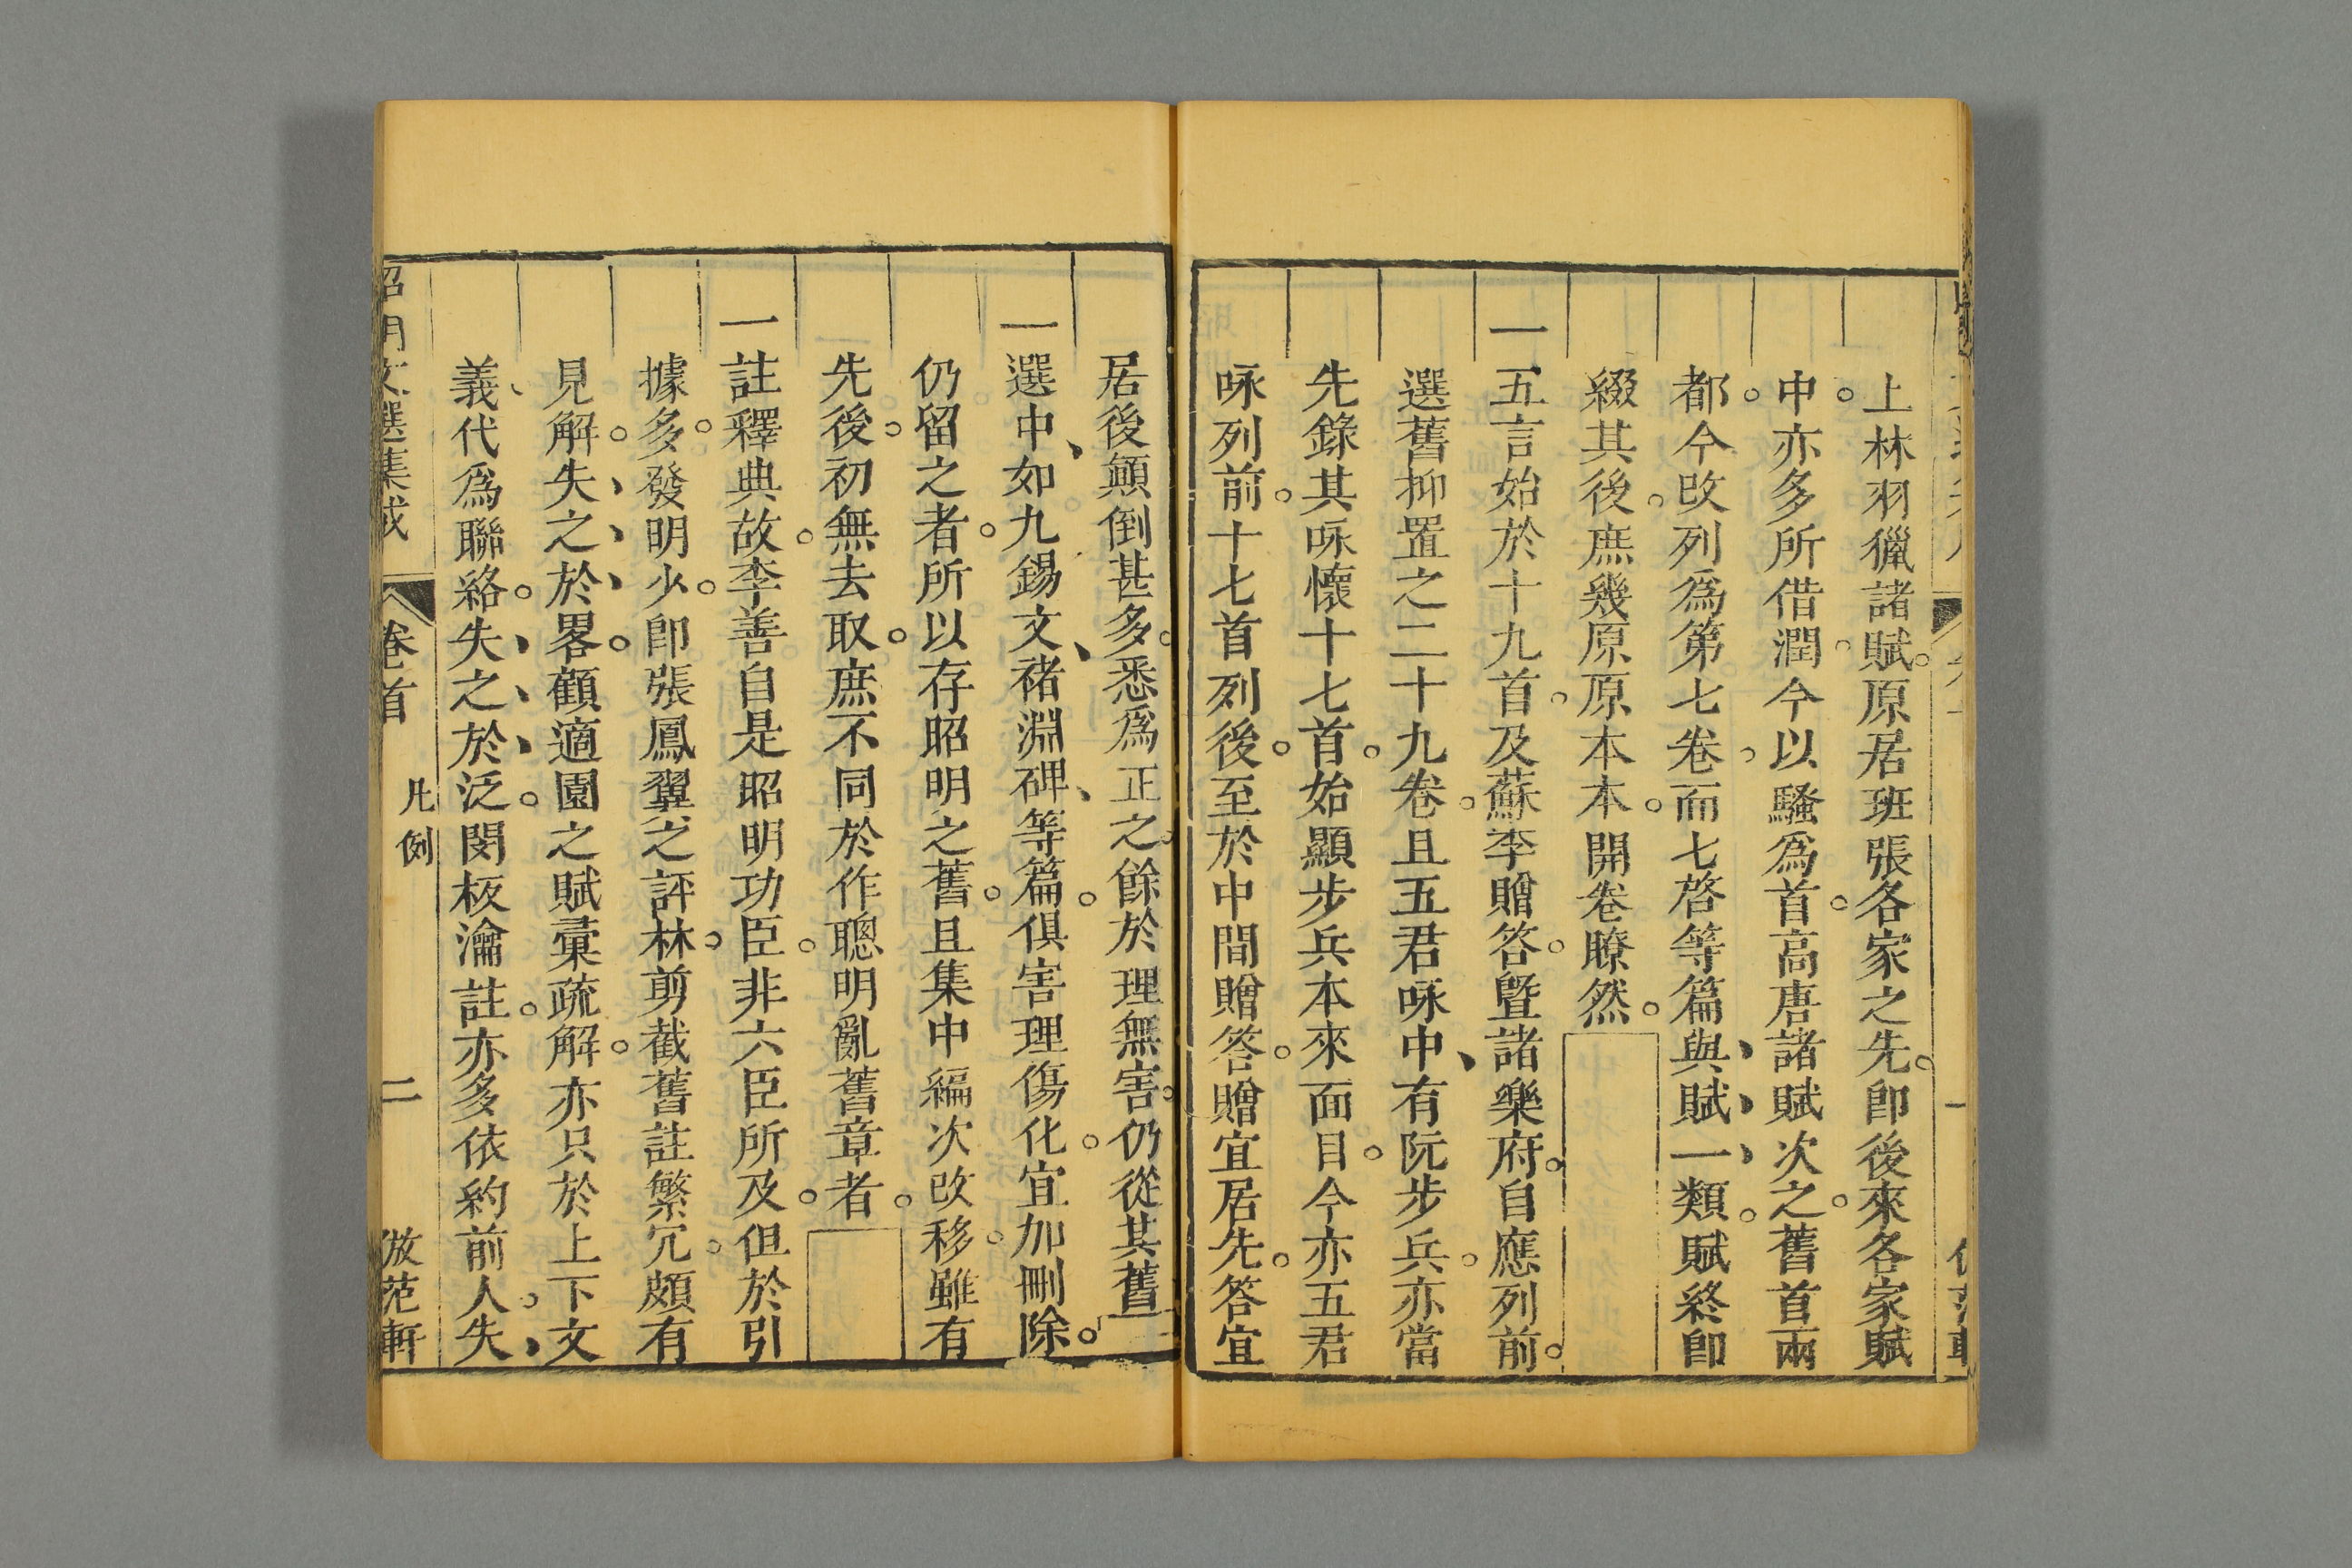 上林羽獵諸賦。原居班張各家之先。即後來各家賦
中。亦多所借潤。今以騷爲首。高唐諸賦次之。舊首兩
都。今改列爲第七卷。而七啓等篇、與、賦、一類。賦終即
綴其後。庶幾原原本本。開卷瞭然。
一五言始於十九首。及蘇李贈答。曁諸樂府。自應列前。
選舊抑置之二十九卷。且五君咏中、有阮步兵。亦當
先錄其咏懷十七首。始顯步兵本來面目。今亦五君
咏列前。十七首列後。至於中間贈答。贈宜居先。答宜
居後。顚倒甚多。悉爲正之。餘於理無害。仍從其舊
一選中、如九錫文、褚淵碑、等篇。俱害理傷化。宜加刪除。
仍留之者。所以存昭明之舊。且集中編次改移。雖有
先後。初無去取。庶不同於作聰明亂舊章者。
一註釋典故。李善自是昭明功臣。非六臣所及。但於引
據多。發明少。即張鳳翼之評林。剪截舊註繁冗。頗有
見解。失、之、於、畧。顧適園之賦彙疏解。亦只於上下文
義、代爲聯絡。失、之、於、泛。閔板瀹註。亦多依約前人。失、
昭明文選集成
卷首
凡例
二
倣范軒